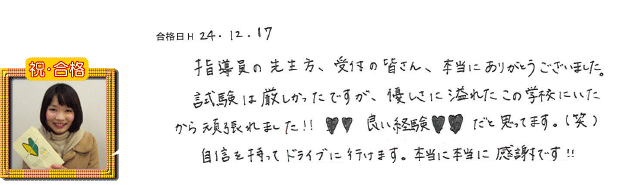 合格日 H 24.12.17
祝・合格
指導員の先生方、受付の皆さん、本当にありがとうございました。
試験は厳しかったですが、優しさに溢れたこの学校にいた
から頑張れました!! ♥♥ 良い経験♥♥ だと思ってます。(笑)
自信を持ってドライブに行けます。本当に本当に感謝です!!